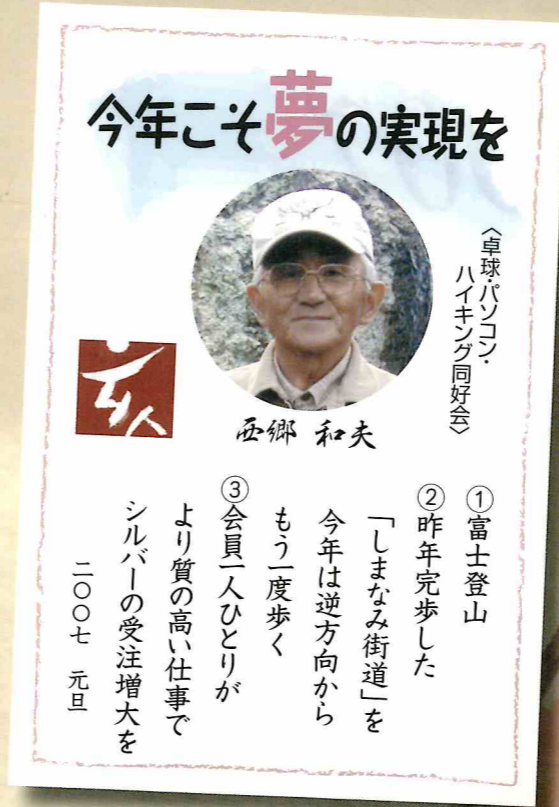 今年こそ夢の実現を
〈卓球・パソコン・
ハイキング同好会〉
西郷 和夫
①富士登山
②昨年完歩した
「しまなみ街道」を
今年は逆方向から
もう一度歩く
③会員一人ひとりが
より質の高い仕事で
シルバーの受注増大を
二〇〇七 元旦